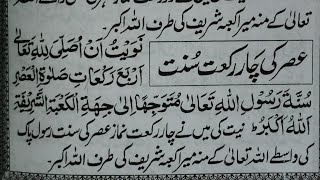 تعالیٰ کے منہ میرا کعبہ شریف کی طرف اللہ اکبر
عصر کی چار رکعت سُنت
نَوَيْتُ اَنْ اُصَلِّیَ لِلّٰہِ تَعَالٰی
اَرْبَعَ رَکَعَاتِ صَلٰوةِ الْعَصْرِ
سُنَّةَ رَسُوْلِ اللّٰہِ تَعَالٰی مُتَوَجِّهًا اِلٰی جِهَةِ الْکَعْبَةِ الشَّرِیْفَةِ
اَللّٰہُ اَکْبَرُ نیت کی میں نے چار رکعت نماز عصر کی سنت رسول پاک
کی واسطے اللہ تعالیٰ کے منہ میرا کعبہ شریف کی طرف اللہ اکبر۔